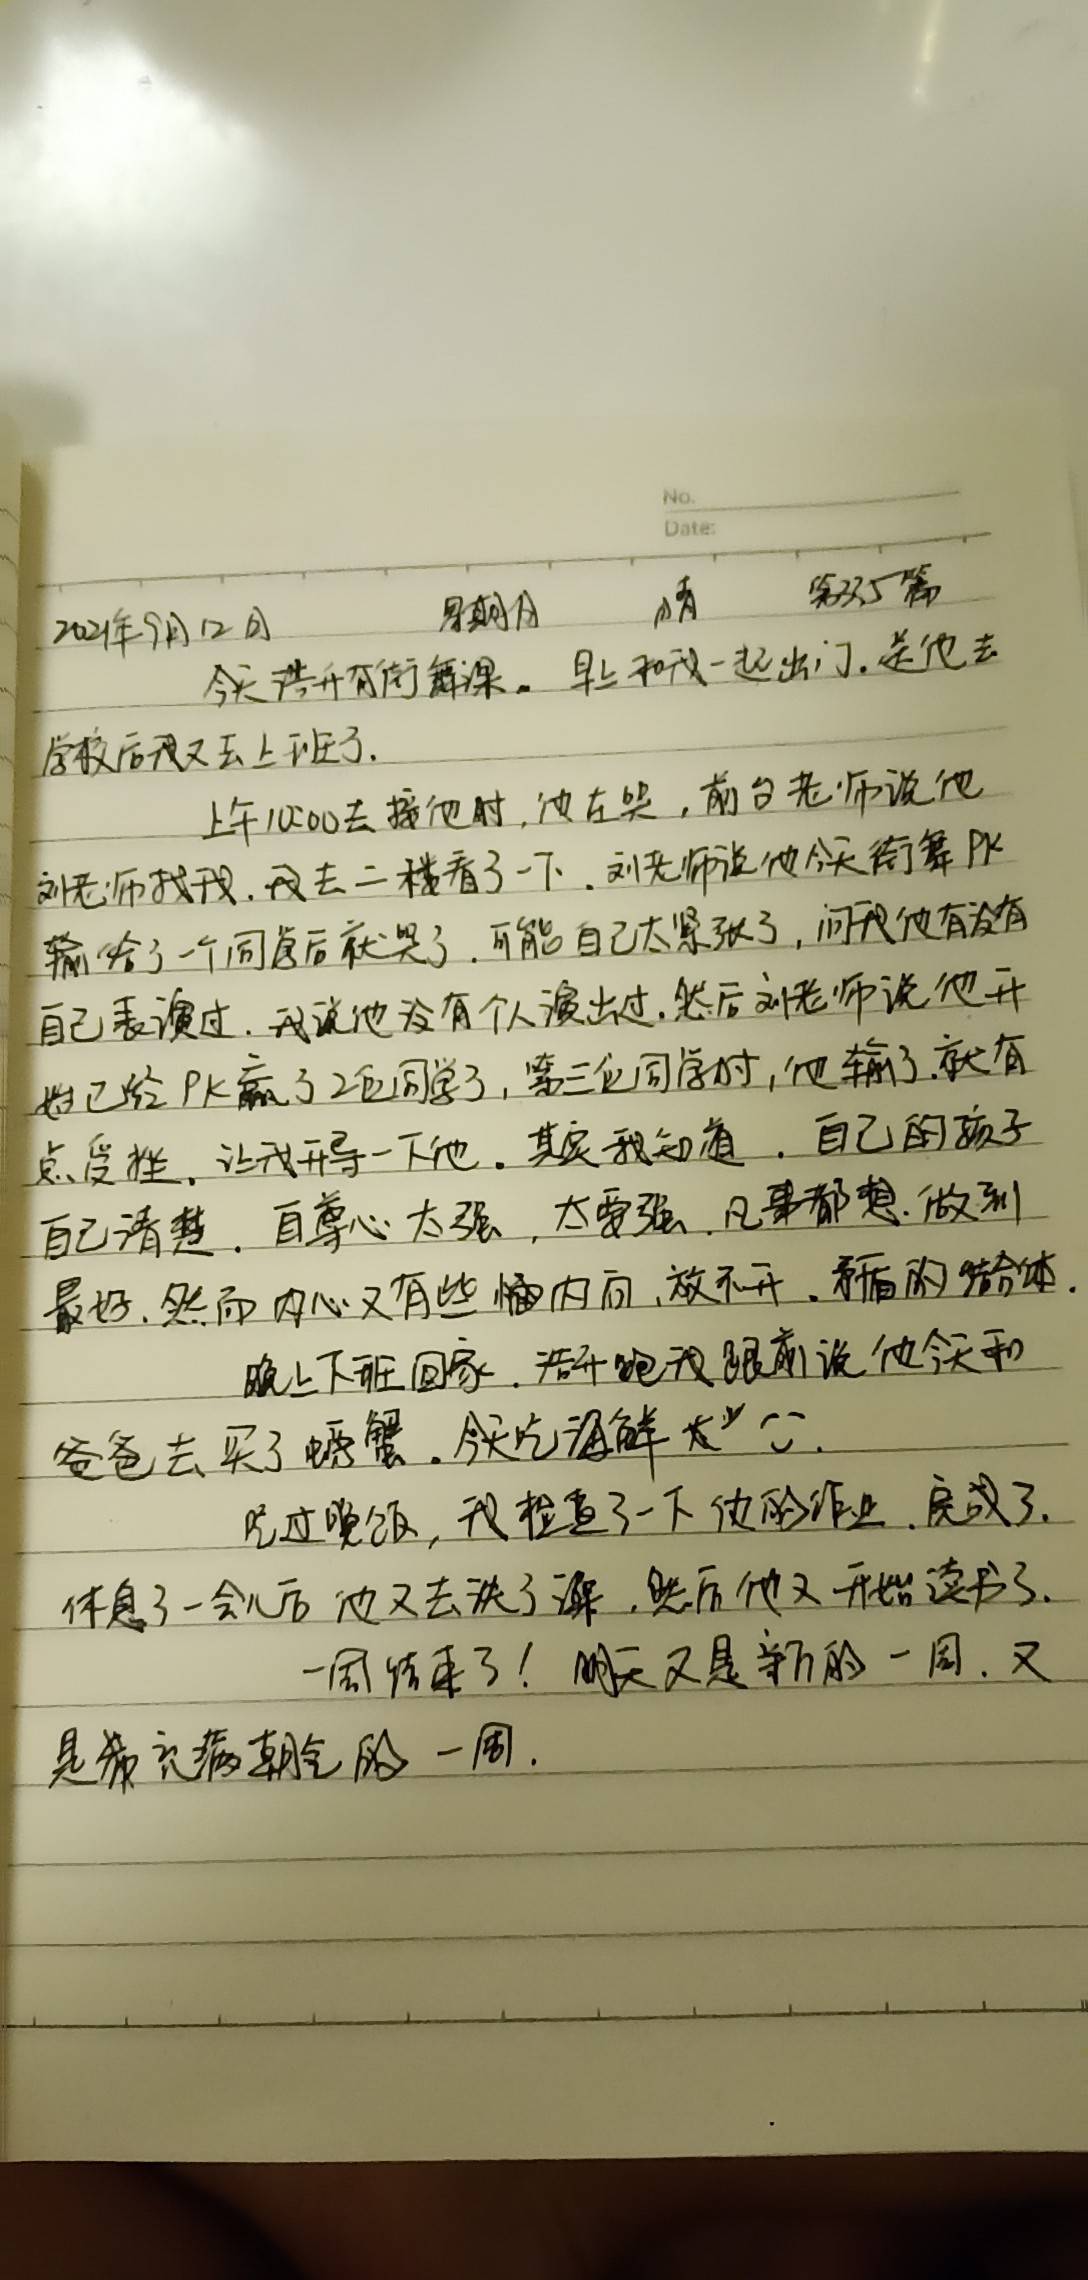 No.
Date:
2021年9月12日 星期日 晴 第335篇
今天浩开有街舞课。早上和我一起出门.送他去
学校后我又去上班了.
上午10:00去接他时,他在哭,前台老师说他
刘老师找我.我去二楼看了一下.刘老师说他今天街舞PK
输给了一个同学后就哭了.可能自己太紧张了,问我他有没有
自己表演过.我说他没有个人演出过.然后刘老师说他开
始已经PK赢了2位同学了,第三位同学时,他输了.就有
点受挫.让我开导一下他.其实我知道.自己的孩子
自己清楚.自尊心太强,太要强.凡事都想做到
最好.然而内心又有些 内向,放不开.矛盾的结合体.
晚上下班回家.浩开跑我跟前说他今天和
爸爸去买了螃蟹.今天吃海鲜大
吃过晚饭,我检查了一下他的作业.完成了.
休息了一会儿后他又去洗了澡.然后他又开始读书了.
一周结束了!明天又是新的一周.又
是 充满朝气的一周.